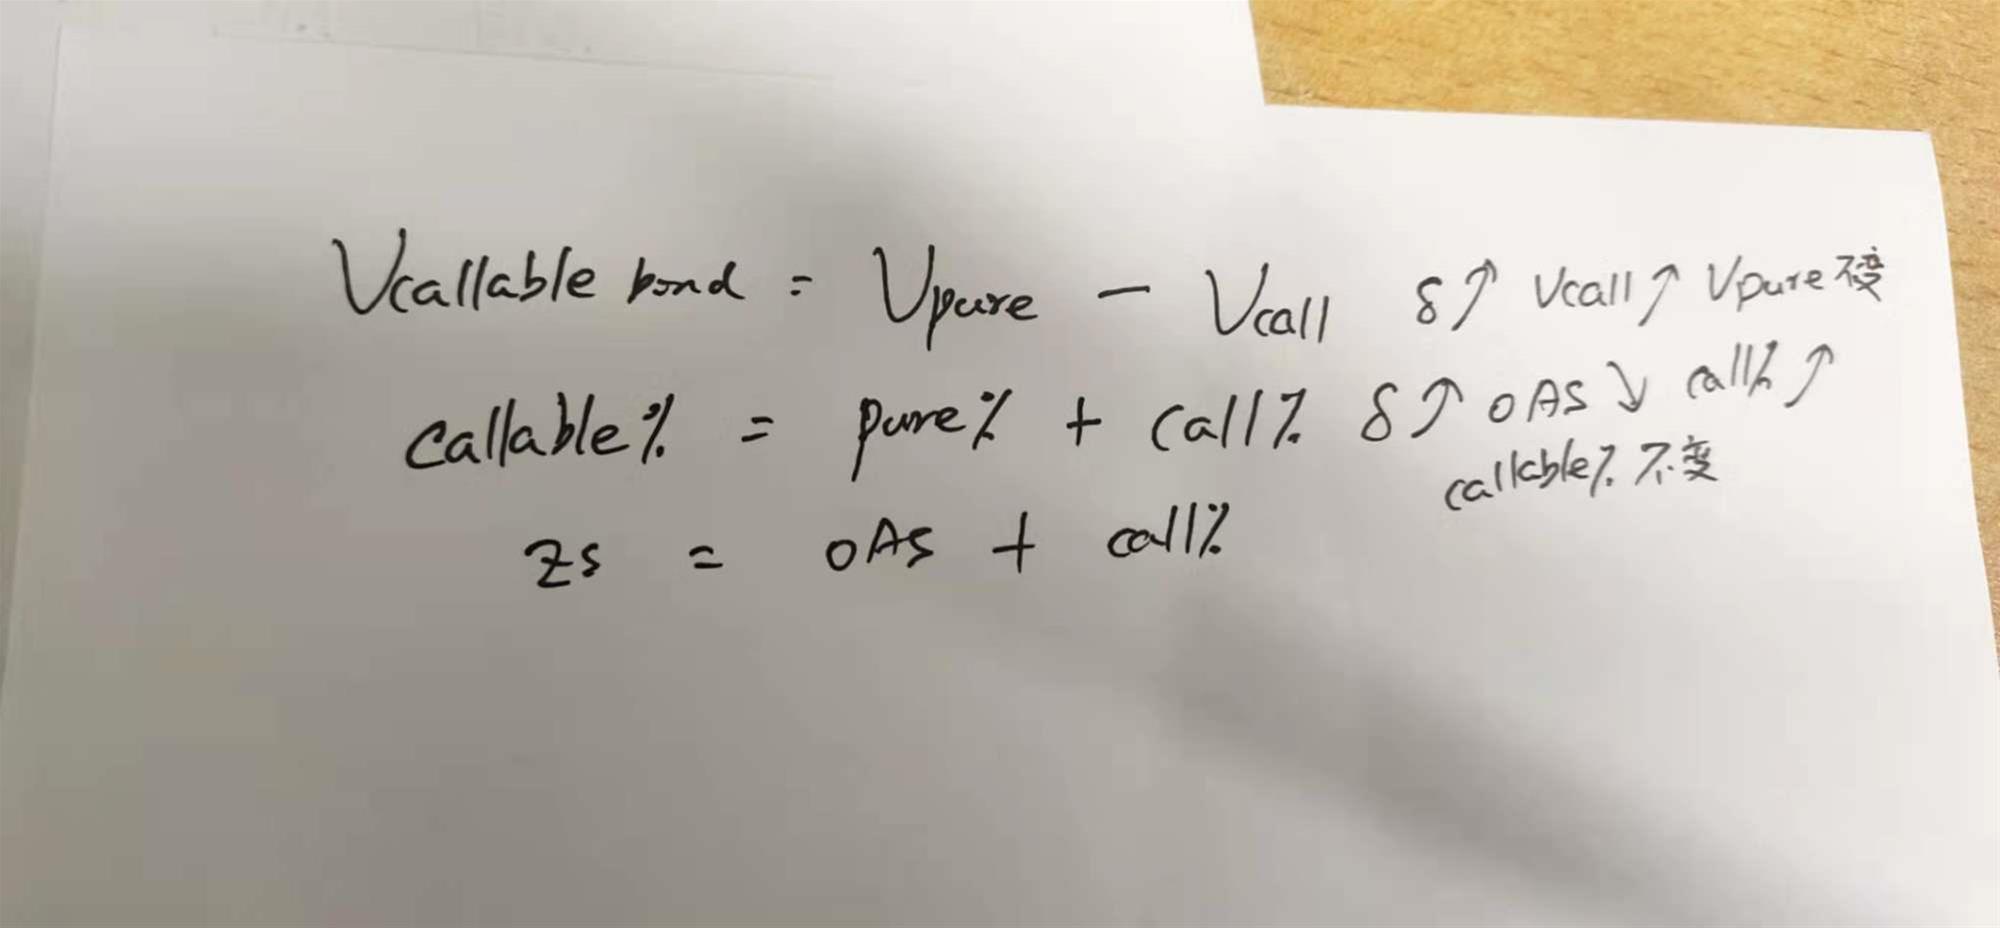 Vcallable bond = Vpure - Vcall δ↑ Vcall↑ Vpure不变
callable% = pure% + call% δ↑ OAS↓ call%↑
callable%不变
ZS = OAS + call%